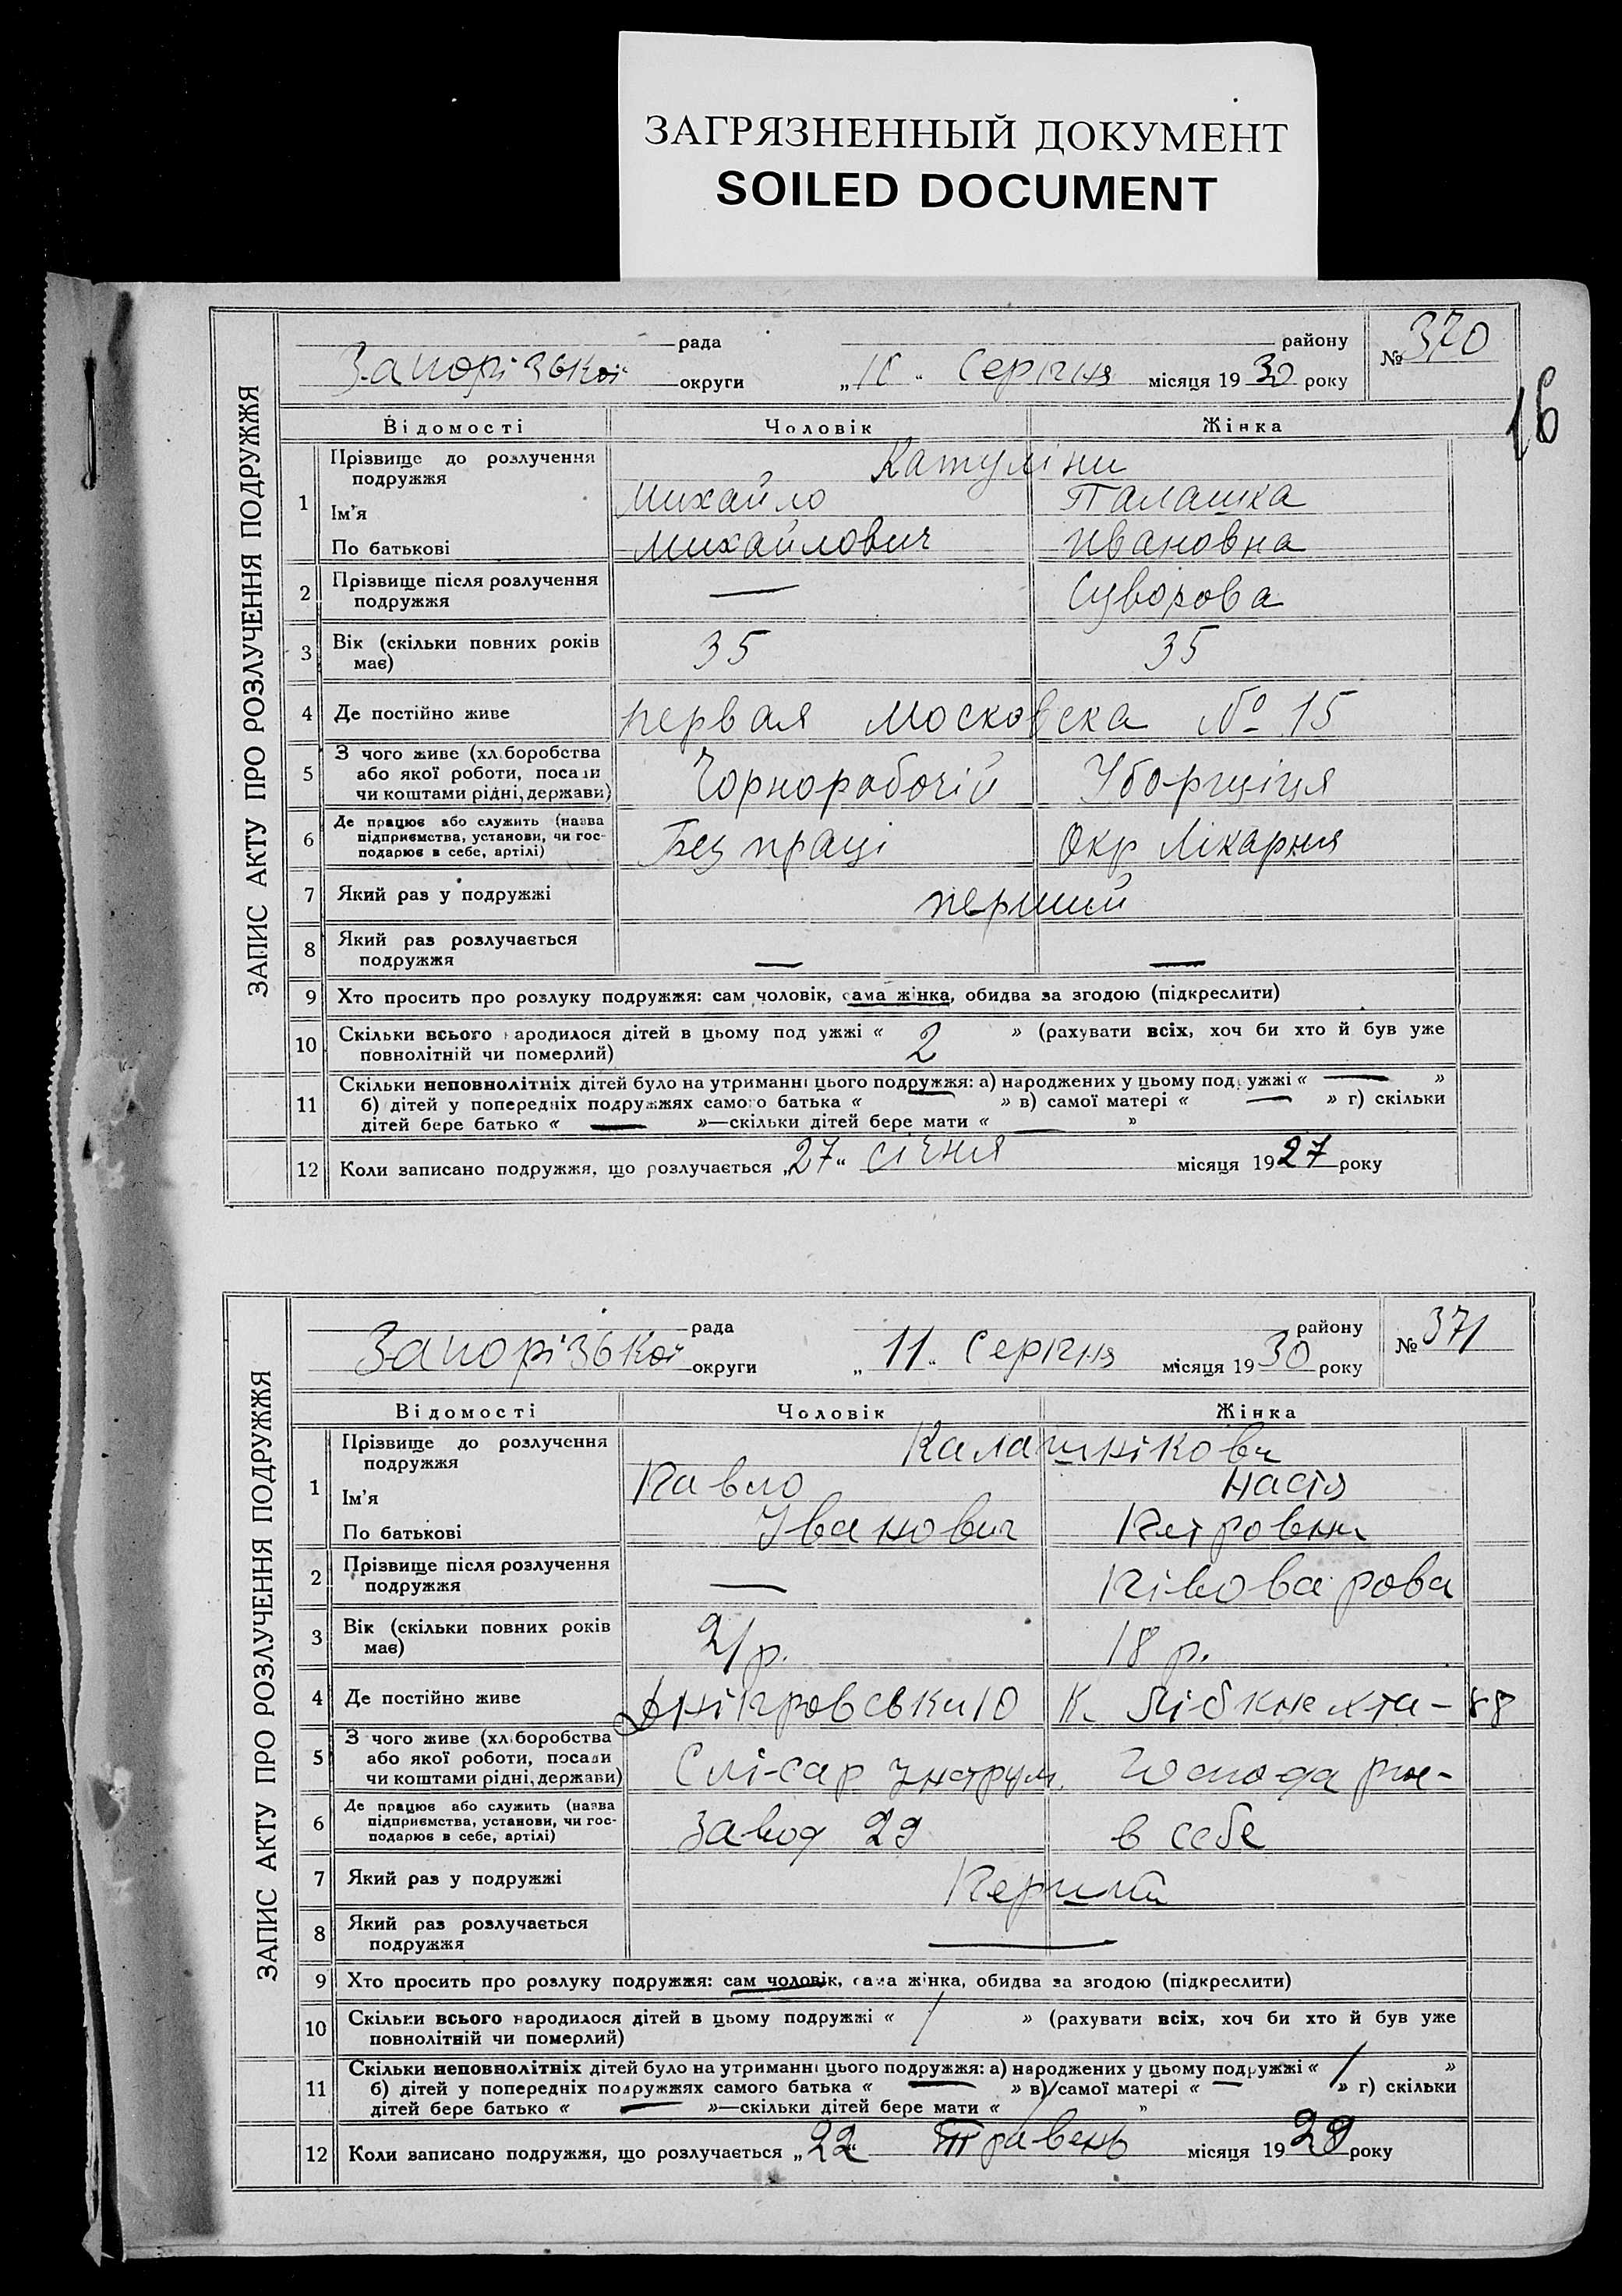 ЗАГРЯЗНЕННЫЙ ДОКУМЕНТ
SOILED DOCUMENT
16
ЗАПИС АКТУ ПРО РОЗЛУЧЕННЯ ПОДРУЖЖЯ
рада району № 370
Запорізької округи „ “ Серпня місяця 1930 року
Відомості Чоловік Жінка
1 Прізвище до розлучення подружжя Катуліни
Ім'я Михайло Палашка
По батькові Михайлович Ивановна
2 Прізвище після розлучення подружжя — Суворова
3 Вік (скільки повних років має) 35 35
4 Де постійно живе первая Московска № 15
5 З чого живе (хл.боробства або якої роботи, посади чи коштами рідні, держави) Чорнорабочій Уборщіця
6 Де працює або служить (назва підприємства, установи, чи господарює в себе, артілі) Без праці Окр Лікарня
7 Який раз у подружжі перший
8 Який раз розлучається подружжя — —
9 Хто просить про розлуку подружжя: сам чоловік, сама жінка, обидва за згодою (підкреслити)
10 Скільки всього народилося дітей в цьому подружжі « 2 » (рахувати всіх, хоч би хто й був уже
повнолітній чи померлий)
11 Скільки неповнолітніх дітей було на утриманні цього подружжя: а) народжених у цьому подружжі « — »
б) дітей у попередніх подружжях самого батька « — » в) самої матері « — » г) скільки
дітей бере батько « — »—скільки дітей бере мати « — »
12 Коли записано подружжя, що розлучається „27“ січня місяця 1927 року
ЗАПИС АКТУ ПРО РОЗЛУЧЕННЯ ПОДРУЖЖЯ
рада району № 371
Запорізької округи „11“ Серпня місяця 1930 року
Відомості Чоловік Жінка
1 Прізвище до розлучення подружжя Калашнікови
Ім'я Павло Настя
По батькові Іванович Петровна
2 Прізвище після розлучення подружжя — Півоварова
3 Вік (скільки повних років має) 21 р. 18 р.
4 Де постійно живе К. Лібкнехта - 88
5 З чого живе (хл.боробства або якої роботи, посади чи коштами рідні, держави) Слісар Інструм.
6 Де працює або служить (назва підприємства, установи, чи господарює в себе, артілі) Завод 29 в себе
7 Який раз у подружжі Перший
8 Який раз розлучається подружжя —
9 Хто просить про розлуку подружжя: сам чоловік, сама жінка, обидва за згодою (підкреслити)
10 Скільки всього народилося дітей в цьому подружжі « / » (рахувати всіх, хоч би хто й був уже
повнолітній чи померлий)
11 Скільки неповнолітніх дітей було на утриманні цього подружжя: а) народжених у цьому подружжі « / »
б) дітей у попередніх подружжях самого батька « — » в) самої матері « — » г) скільки
дітей бере батько « — »—скільки дітей бере мати « / »
12 Коли записано подружжя, що розлучається „22“ Травень місяця 1929 року